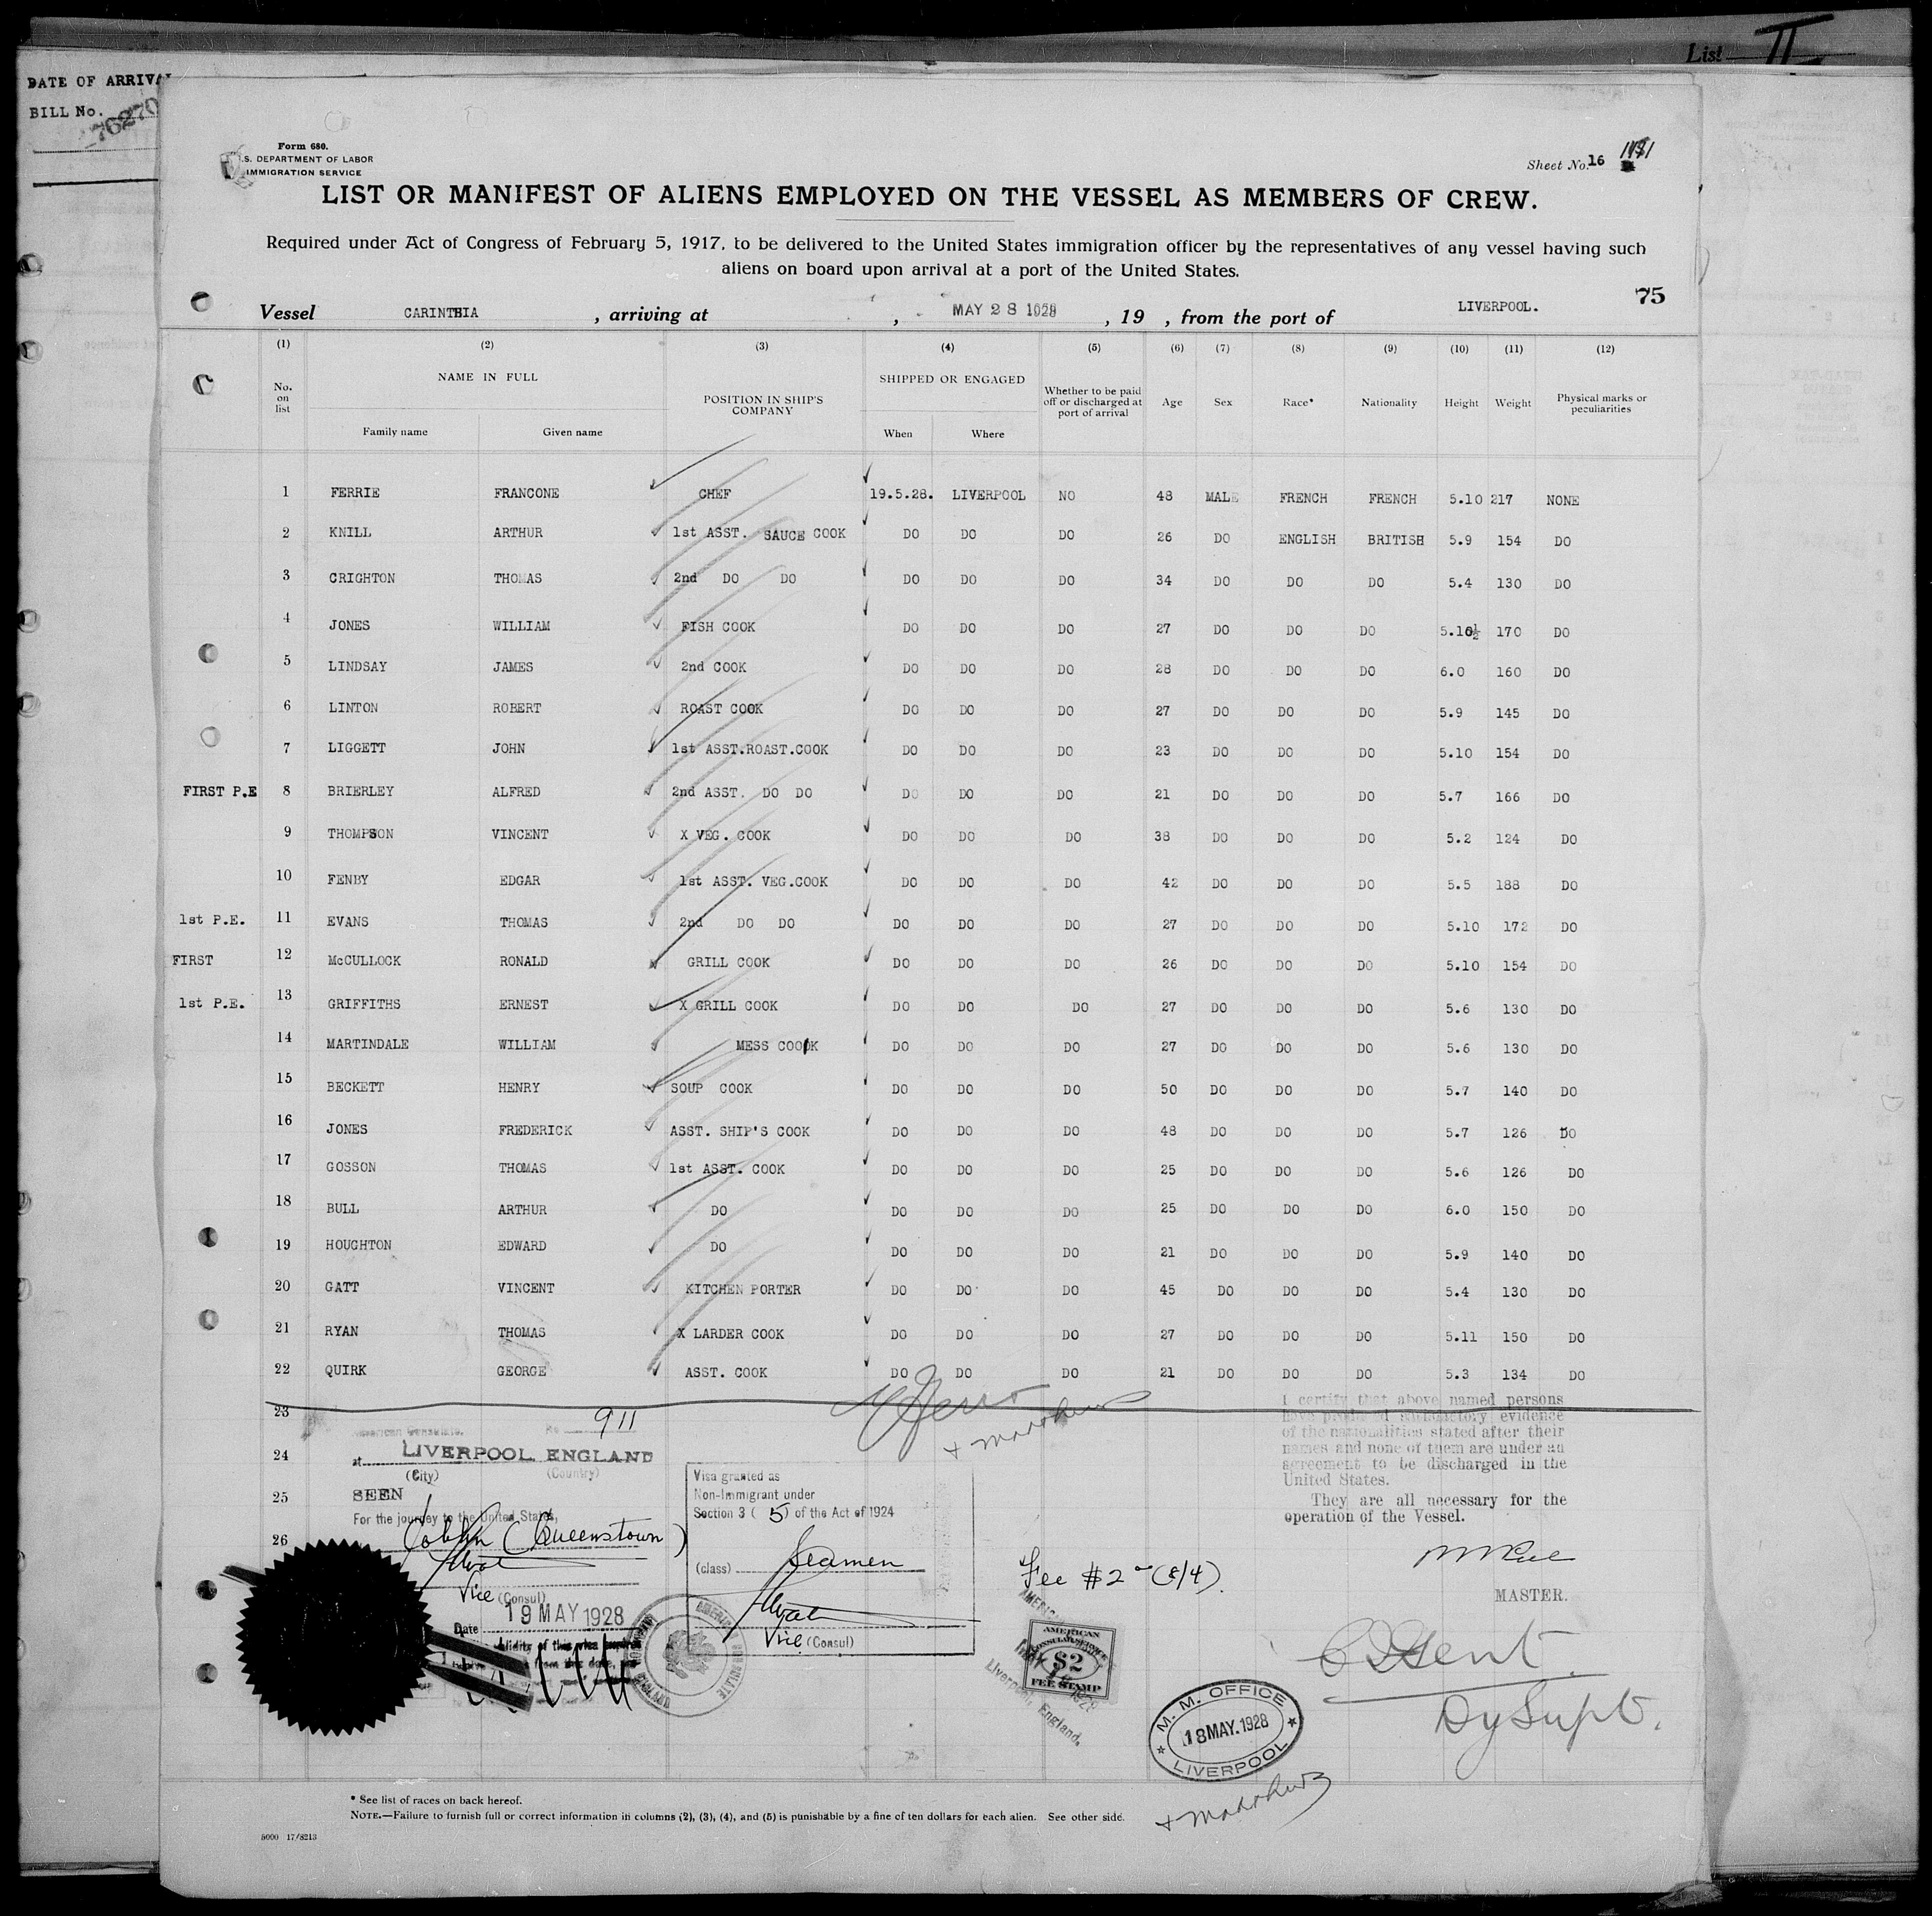 List II
DATE OF ARRIVAL
BILL No.
76270
Form 680.
U.S. DEPARTMENT OF LABOR
IMMIGRATION SERVICE
Sheet No. 16
LIST OR MANIFEST OF ALIENS EMPLOYED ON THE VESSEL AS MEMBERS OF CREW.
Required under Act of Congress of February 5, 1917, to be delivered to the United States immigration officer by the representatives of any vessel having such
aliens on board upon arrival at a port of the United States.
75
Vessel CARINTHIA , arriving at , MAY 28 1928 , 19 , from the port of LIVERPOOL.
(1) (2) (3) (4) (5) (6) (7) (8) (9) (10) (11) (12)
No. on list NAME IN FULL POSITION IN SHIP'S COMPANY SHIPPED OR ENGAGED Whether to be paid off or discharged at port of arrival Age Sex Race* Nationality Height Weight Physical marks or peculiarities
Family name Given name When Where
1 FERRIE FRANCONE CHEF 19.5.28. LIVERPOOL NO 48 MALE FRENCH FRENCH 5.10 217 NONE
2 KNILL ARTHUR 1st ASST. SAUCE COOK DO DO DO 26 DO ENGLISH BRITISH 5.9 154 DO
3 CRIGHTON THOMAS 2nd DO DO DO DO DO 34 DO DO DO 5.4 130 DO
4 JONES WILLIAM FISH COOK DO DO DO 27 DO DO DO 5.10½ 170 DO
5 LINDSAY JAMES 2nd COOK DO DO DO 28 DO DO DO 6.0 160 DO
6 LINTON ROBERT ROAST COOK DO DO DO 27 DO DO DO 5.9 145 DO
7 LIGGETT JOHN 1st ASST.ROAST.COOK DO DO DO 23 DO DO DO 5.10 154 DO
FIRST P.E 8 BRIERLEY ALFRED 2nd ASST. DO DO DO DO DO 21 DO DO DO 5.7 166 DO
9 THOMPSON VINCENT X VEG. COOK DO DO DO 38 DO DO DO 5.2 124 DO
10 FENBY EDGAR 1st ASST. VEG.COOK DO DO DO 42 DO DO DO 5.5 188 DO
1st P.E. 11 EVANS THOMAS 2nd DO DO DO DO DO 27 DO DO DO 5.10 172 DO
FIRST 12 McCULLOCK RONALD GRILL COOK DO DO DO 26 DO DO DO 5.10 154 DO
1st P.E. 13 GRIFFITHS ERNEST X GRILL COOK DO DO DO 27 DO DO DO 5.6 130 DO
14 MARTINDALE WILLIAM MESS COOK DO DO DO 27 DO DO DO 5.6 130 DO
15 BECKETT HENRY SOUP COOK DO DO DO 50 DO DO DO 5.7 140 DO
16 JONES FREDERICK ASST. SHIP'S COOK DO DO DO 48 DO DO DO 5.7 126 DO
17 GOSSON THOMAS 1st ASST. COOK DO DO DO 25 DO DO DO 5.6 126 DO
18 BULL ARTHUR DO DO DO DO 25 DO DO DO 6.0 150 DO
19 HOUGHTON EDWARD DO DO DO DO 21 DO DO DO 5.9 140 DO
20 GATT VINCENT KITCHEN PORTER DO DO DO 45 DO DO DO 5.4 130 DO
21 RYAN THOMAS X LARDER COOK DO DO DO 27 DO DO DO 5.11 150 DO
22 QUIRK GEORGE ASST. COOK DO DO DO 21 DO DO DO 5.3 134 DO
23
24
25
26
American Consulate. No 911
at LIVERPOOL ENGLAND
(City) (Country)
SEEN
For the journey to the United States,
Cobh (Queenstown)
Vice (Consul)
Date 19 MAY 1928
validity of this visa
from this date,
Visa granted as
Non-Immigrant under
Section 3 (5) of the Act of 1924
(class) Seamen
Vice (Consul)
Fee #2 (8/4).
AMERICAN
CONSULAR SERVICE
$2
FEE STAMP
Liverpool, England.
I certify that above named persons
have produced satisfactory evidence
of the nationalities stated after their
names and none of them are under an
agreement to be discharged in the
United States.
They are all necessary for the
operation of the Vessel.
MASTER.
Dy Supt.
M. M. OFFICE
18 MAY. 1928
LIVERPOOL
* See list of races on back hereof.
NOTE.—Failure to furnish full or correct information in columns (2), (3), (4), and (5) is punishable by a fine of ten dollars for each alien. See other side.
5000 17/8213